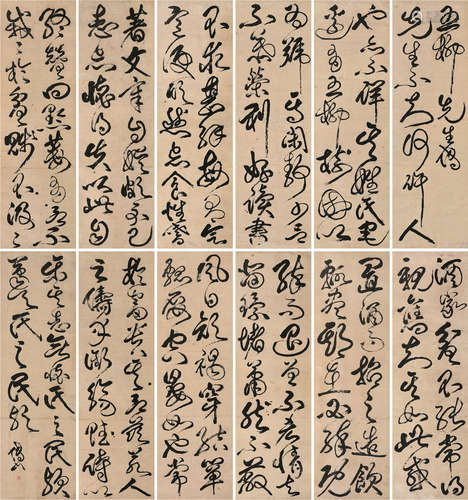 五柳先生傳
先生不知何許人
也亦不詳其姓氏宅
邊有五柳樹因以
爲號焉閑靜少言
不慕榮利好讀書
不求甚解每有會
意便欣然忘食性嗜
酒家貧不能常得
親舊知其如此或
置酒而招之造飲
輒盡期在必醉既
醉而退曾不吝情去
留環堵蕭然不蔽
風日短褐穿結簞
瓢屢空晏如也常
著文章自娛頗示己
志忘懷得失以此自
終贊曰黔婁有言不
戚〻於貧賤不汲〻
於富貴其言茲若人
之儔乎酣觴賦詩以
樂其志無懷氏之民歟
葛天氏之民歟 傅山